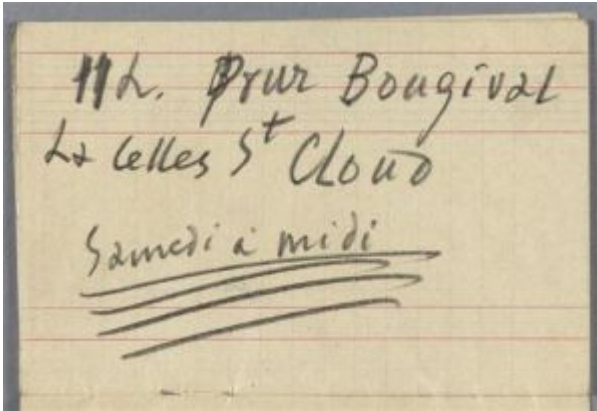 11h. Pour Bougival
La Celles St Cloud
Samedi à midi